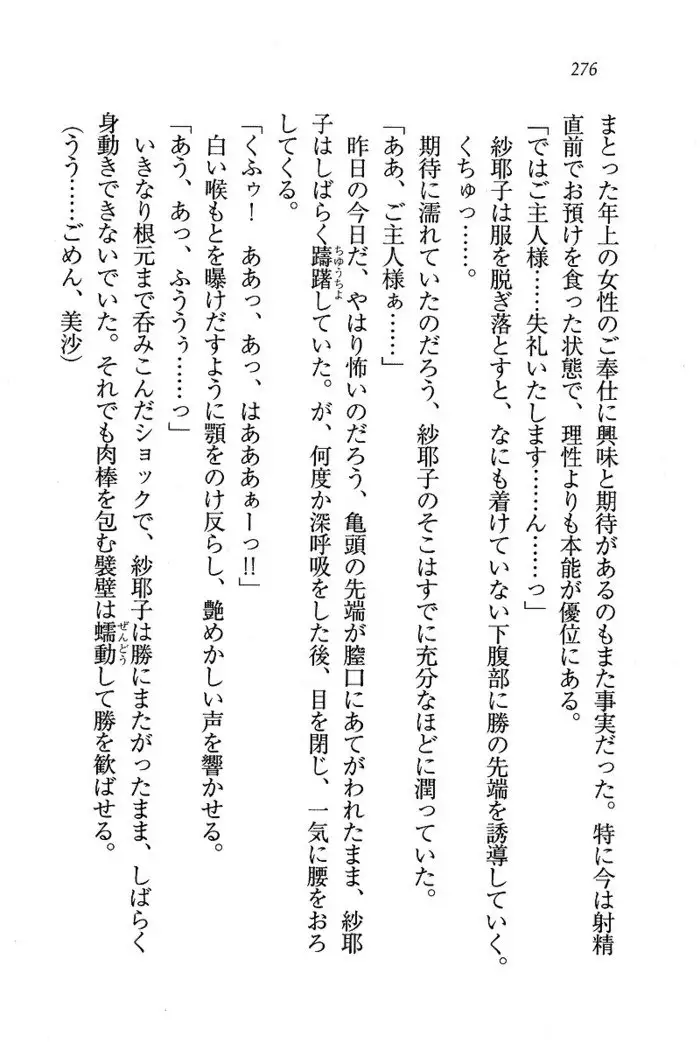 276
まとった年上の女性のご奉仕に興味と期待があるのもまた事実だった。特に今は射精
直前でお預けを食った状態で、理性よりも本能が優位にある。
「ではご主人様……失礼いたします……ん……っ」
紗耶子は服を脱ぎ落とすと、なにも着けていない下腹部に勝の先端を誘導していく。
くちゅっ……。
期待に濡れていたのだろう、紗耶子のそこはすでに充分なほどに潤っていた。
「ああ、ご主人様ぁ……」
昨日の今日だ、やはり怖いのだろう、亀頭の先端が膣口にあてがわれたまま、紗耶
子はしばらく躊躇していた。が、何度か深呼吸をした後、目を閉じ、一気に腰をおろ
ちゅうちよ
してくる。
「くふゥ！　ああっ、あっ、はあああぁーっ!!」
白い喉もとを曝けだすように顎をのけ反らし、艶めかしい声を響かせる。
「あう、あっ、ふううぅ……っ」
いきなり根元まで呑みこんだショックで、紗耶子は勝にまたがったまま、しばらく
身動きできないでいた。それでも肉棒を包む襞壁は蠕動して勝を歓ばせる。
ぜんどう
(うう……ごめん、美沙)